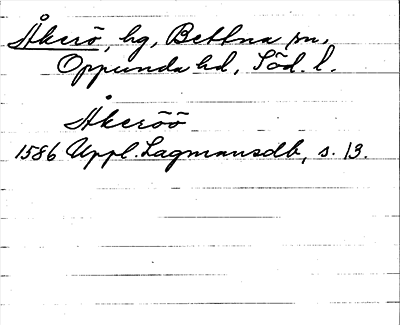 Åkerö, hg, Bettna sn,
Oppunda hd, Söd. l.
Åkeröö
1586 Uppl. Lagmansdb, s. 13.